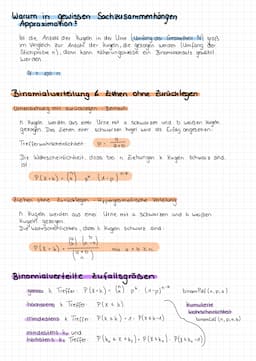 Warum in gewissen Sachzusammenhängen
Approximation?
Ist die Anzahl der Kugeln in der Urne (Umfang der Gesamtheit N) groß
im Vergleich zur Anzahl der Kugeln, die gezogen werden (Umfang der
Stichprobe n), dann kann näherungsweise ein Binomialansatz gewählt
werden
Binomialverteilung & Ziehen ohne Zurücklegen
n Kugeln werden aus einer Urne mit a schwarzen und b weißen Kugeln
gezogen. Das Ziehen einer schwarzen Kugel wird als Erfolg angesehen.
Trefferwahrscheinlichkeit: p = a/(a+b)
Die Wahrscheinlichkeit, dass bei n Ziehungen k Kugeln schwarz sind,
ist
P(X=k) = (n k) · p^k · (1-p)^(n-k)
Ziehen ohne Zurücklegen - Hypergeometrische Verteilung
n Kugeln werden aus einer Urne mit a schwarzen und b weißen
Kugeln gezogen.
Die Wahrscheinlichkeit, dass k Kugeln schwarz sind:
P(X=k) = (a k) · (b n-k) / (a+b n)
Binomialverteilte Zufallsgrößen
genau k Treffer: P(X=k) = (n k) · p^k · (1-p)^(n-k) binomPdf(n,p,k)
höchstens k Treffer: P(X≤k)
kumulierte
Wahrscheinlichkeit
mindestens k Treffer: P(X≥k) = 1 - P(X≤k-1)
binomCdf(n,p,k)
mindestens k₁ und
höchstens k₂ Treffer: